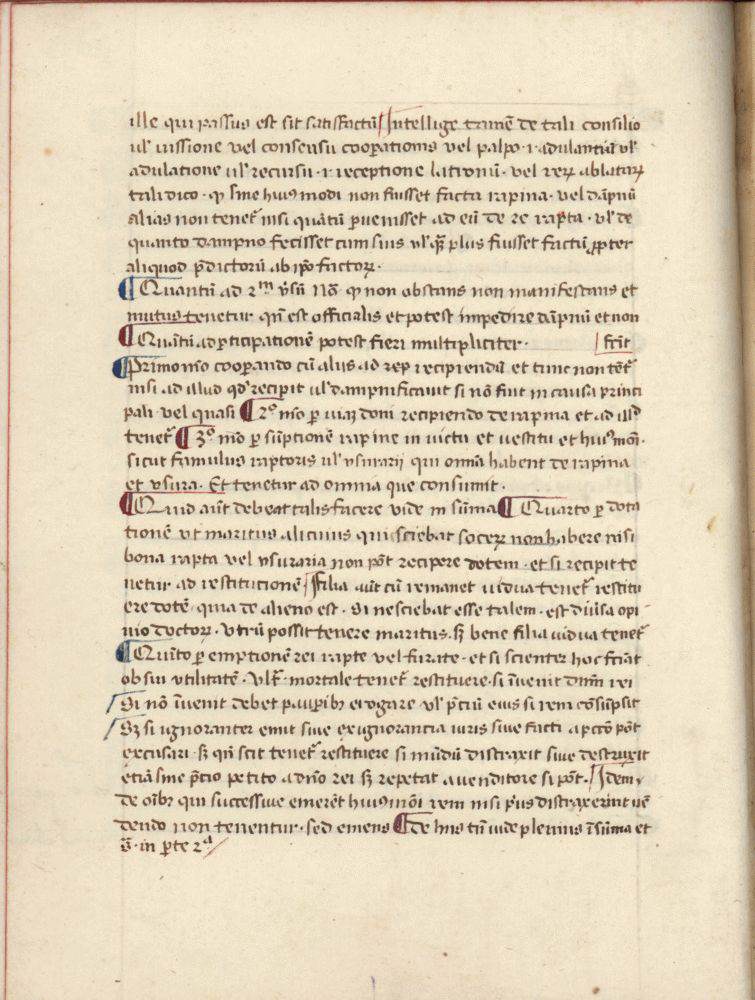 ille qui passus est sit satisfactū Intellige tamē de tali consilio
ul' iussione vel consensu cooꝑationis vel palpo · i · adulantiū ul'
adulatione ul' recursu · i · receptione latronū · vel reꝝ ablataꝝ
tali dico · ꝙ sine huiusmodi non fuisset facta rapina · vel dāpnū
alias non tenet' nisi quātū ꝑuenisset ad eū de re rapta · ul' de
quanto dampno fecisset eum suus plus fuisset factū ꝓpter
aliquod p̄dictorū ab ipō factoꝝ ·
¶ Quantū ad 2m v̄sū Nō ꝙ non obstans non manifestans et
mutus tenetur qn̄ est officialis et potest impedire dāpnū et non
¶ Quātū ad ꝑticipationē potest fieri multipliciter · fecit
¶ Primo mō cooꝑando cū aliis ad rem recipiendā et tunc non tēt'
nisi ad illud qd' recipit ul' dampnificauit si nō fuit in causa princi
pali · vel quasi ¶ 2º mō ꝑ uiam doni recipiendo de rapina et ad illud
tenet' ¶ 3º mō ꝑ sūptionē rapine in uictu et uestitu et huiusmōi ·
sicut famulus raptoris ul' vsurarij qui omīa habent de rapina
et vsura · Et tenetur ad omnia que consumit ·
¶ Quid aūt debeat talis facere vide in sūma ¶ Quarto ꝑ dota
tionē vt maritus alicuius qui sciebat soceꝝ non habere nisi
bona rapta vel vsuraria non pōt recipere dotem · et si recipit te
netur ad restitucionē · Filia aūt cū remanet uidua tenet' restitu
ere dotē · quia de alieno est · Si nesciebat esse talem · est diūsa opi
nio doctoꝝ · Vtrū possit tenere maritus · sꝫ bene filia uidua tenet'
¶ Quīto ꝑ emptionē rei rapte vel furate · et si scienter hoc faciat
ob sui utilitatē · mortale tenet' restituere · si īuenit dn̄m rei
Si nō īuenit debet pauꝑibꝰ erogare ul' p̄ciū eius si rem cōsūpsit
Sꝫ si ignoranter emit siue ex ignorancia iuris siue facti a pctō pōt
excusari · sꝫ qn̄ scit tenet' restituere si nūdū distraxit siue destruxit
etiā sine p̄cio petito a dn̄o rei sꝫ repetat a uenditore si pōt · Idem
de oībꝰ qui successiue emerēt huiusmōi rem nisi pꝰus distraxerint uē
dendo non tenentur · sed emens ¶ de hiis tn̄ uide plenius ī sūma et
in ꝑte 2ª